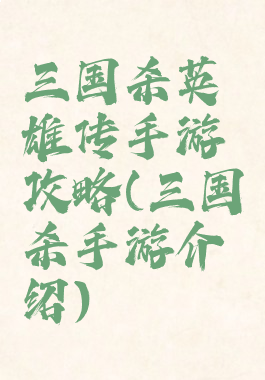 三国杀英
雄传手游
攻略(三国
杀手游介
绍)